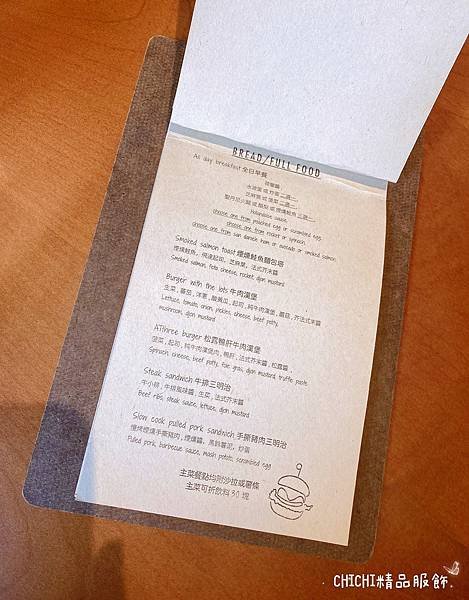 BREAD/FULL FOOD
All day breakfast 全日早餐
水波蛋 或 炒蛋 二選一,
芝麻葉 或 菠菜 二選一,
聖丹尼火腿 或 酪梨 或 煙燻鮭魚 三選一,
Hollandaise sauce,
choose one from poached egg or scrambled egg,
choose one from rocket or spinach,
choose one from san daniele ham or avocado or smoked salmon,
Smoked salmon toast 煙燻鮭魚麵包塔
煙燻鮭魚, 飛達起司, 芝麻葉, 法式芥末醬
Smoked salmon, feta cheese, rocket, dijon mustard
Burger with the lots 牛肉漢堡
生菜, 蕃茄, 洋蔥, 酸黃瓜, 起司, 純牛肉漢堡肉, 蘑菇, 芥法式末醬
Lettuce, tomato, onion, pickles, cheese, beef patty,
mushroom, dijon mustard
AThree burger 松露鴨肝牛肉漢堡
菠菜, 起司, 純牛肉漢堡肉, 鴨肝, 法式芥末醬, 松露醬
Spinach, cheese, beef patty, foie gras, dijon mustard, truffle paste
Steak sandwich 牛排三明治
牛小排, 牛排風味醬, 生菜, 法式芥末醬
Beef ribs, steak sauce, lettuce, dijon mustard
Slow cook pulled pork sandwich 手撕豬肉三明治
慢烤煙燻手撕豬肉, 煙燻醬, 馬鈴薯泥, 炒蛋
Pulled pork, barbecue sauce, mash potato, scrambled egg
主菜餐點均附沙拉或薯條
主菜可折飲料 30 塊
CHICHI精品服飾